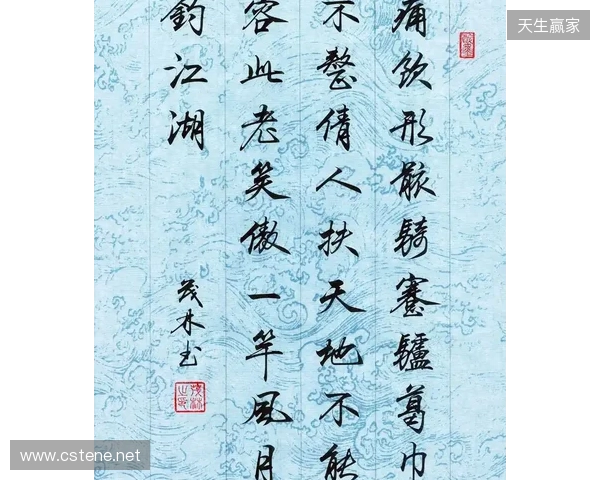 天生赢家
痛饮形骸騎蹇驢葛巾
不整倩人扶天地不能
容此老笑傲一竿風月
釣江湖
茂林书
www.cstene.net